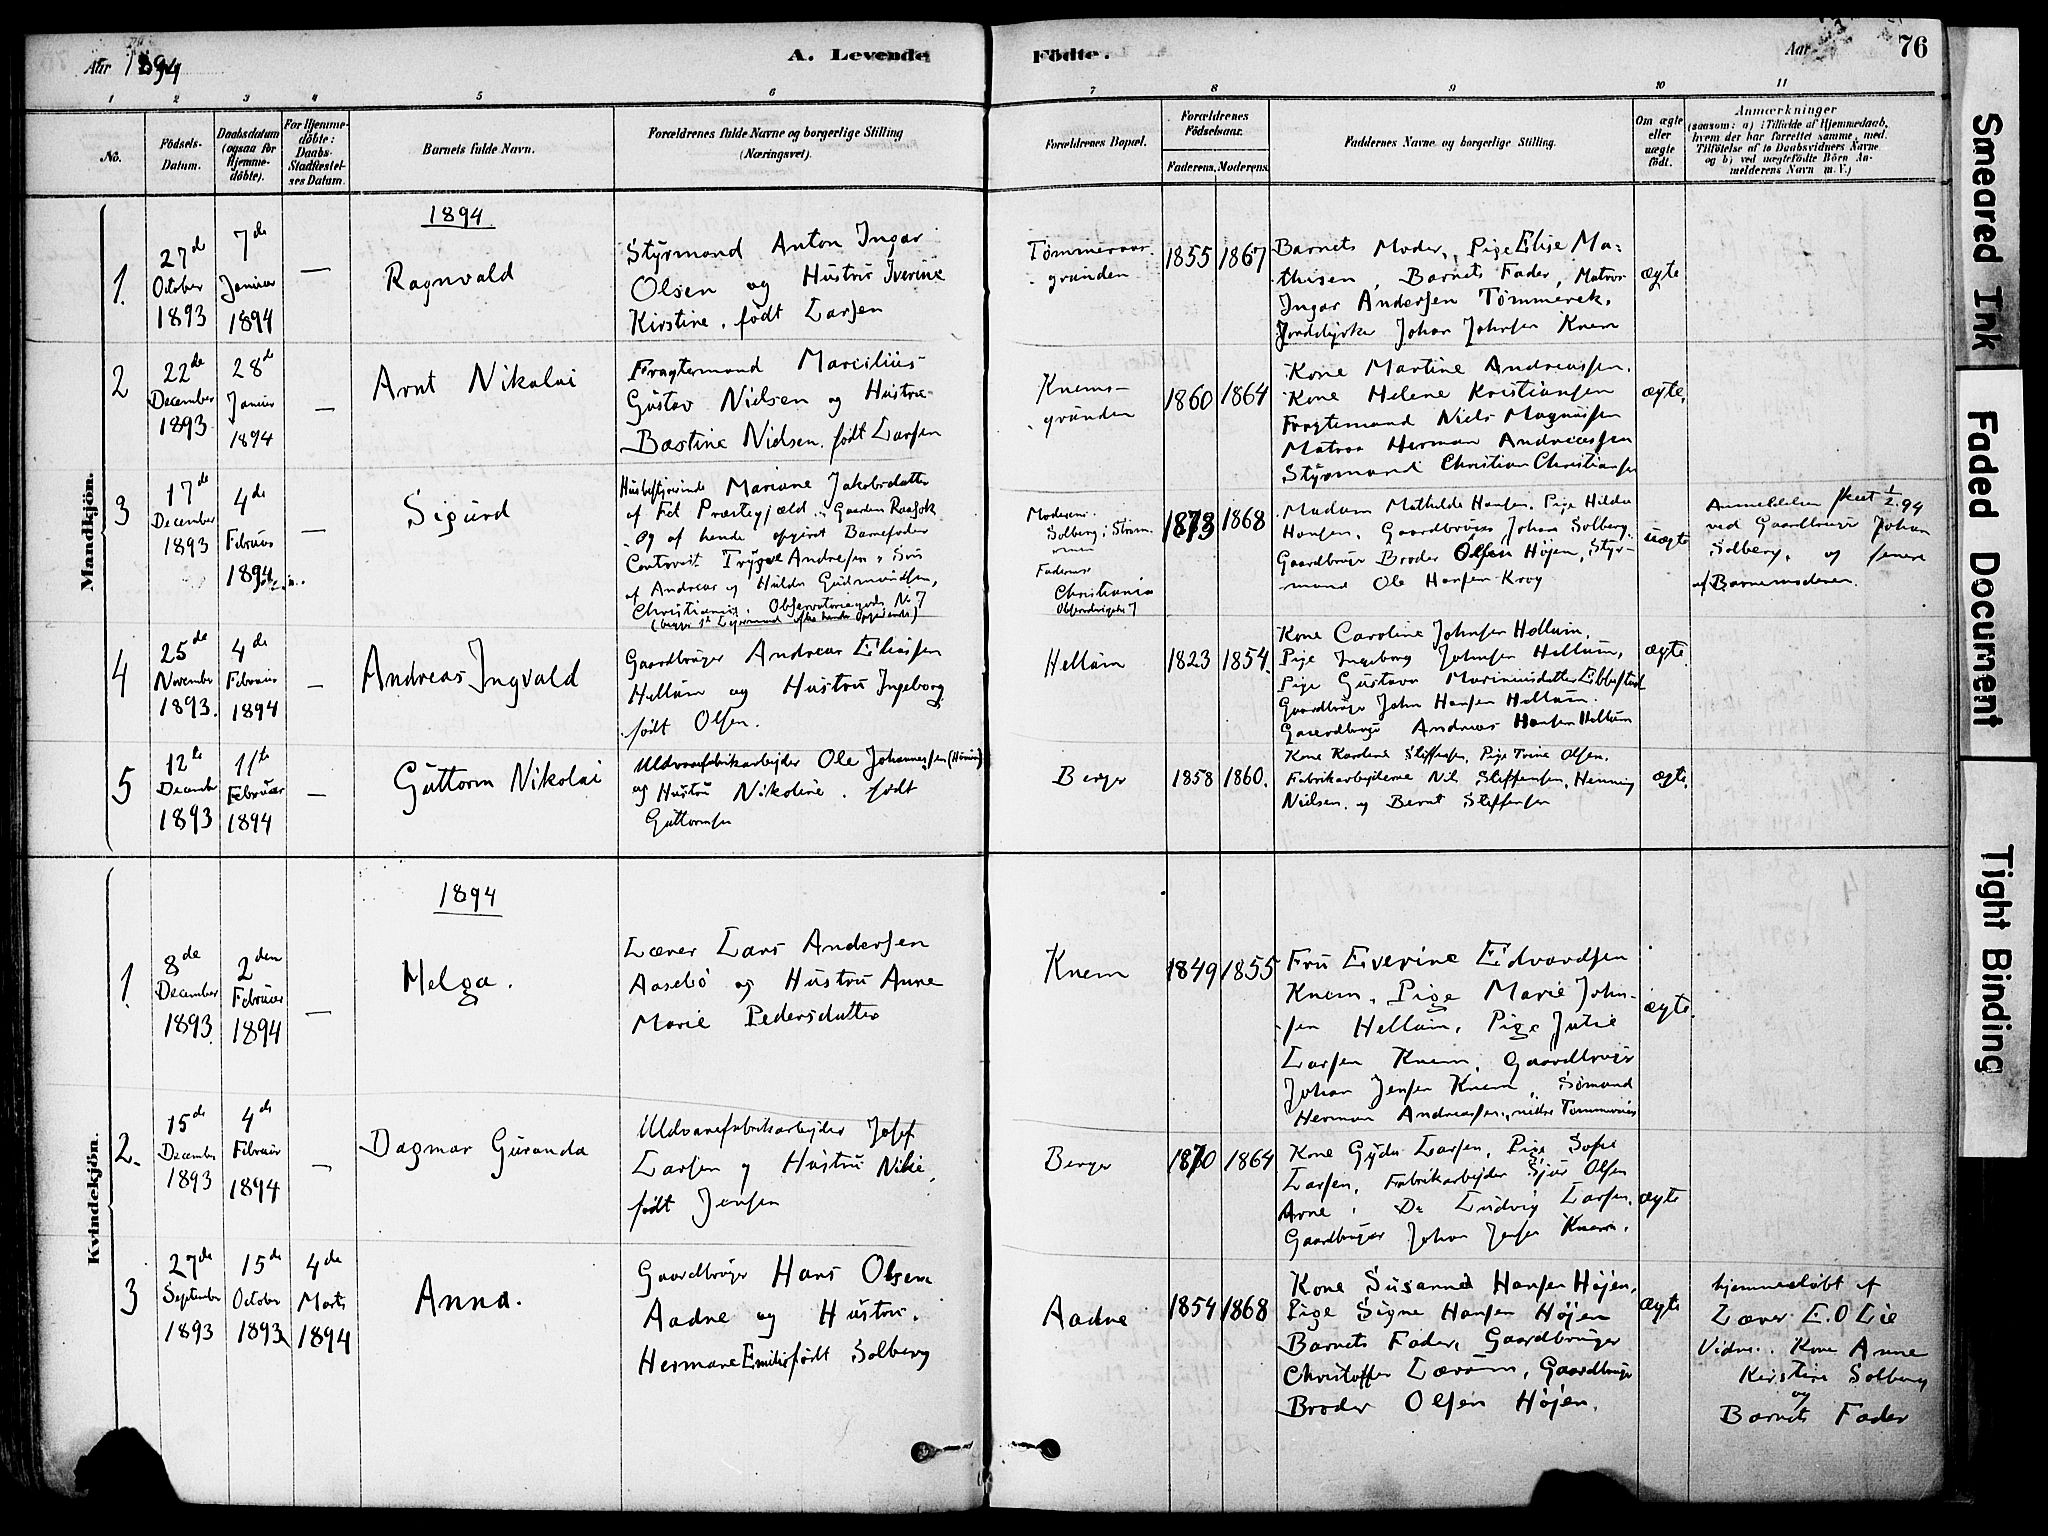 Aar 1894
A. Levende
Födte.
Aar
76
1 2 3 4 5 6 7 8 9 10 11
No.
Födsels-
Datum.
Daabsdatum
(ogsaa for
Hjemme-
döbte).
For Hjemme-
döbte:
Daabs-
Stadfæstel-
ses Datum.
Barnets fulde Navn.
Forældrenes fulde Navne og borgerlige Stilling
(Næringsvei).
Forældrenes Bopæl.
Forældrenes
Födselsaar.
Faderens. Moderens.
Faddernes Navne og borgerlige Stilling.
Om ægte
eller
uægte
födt.
Anmærkninger
(saasom: a) i Tilfælde af Hjemmedaab,
hvem der har forrettet samme, med
Tilföielse af to Daabsvidners Navne
og b) ved uægtefödte Börn An-
melderens Navn m. V.)
Mandkjön.
1894
1.
27de
October
1893
7de
Januar
1894
—
Ragnvald
Styrmand Anton Ingar
Olsen og Hustru Iverine
Kirstine, født Larsen
Tømmeraas
grunden
1855
1867
Barnets Moder, Pige Elise Ma-
thisen, Barnets Fader, Matros
Ingar Andersen Tømmerek.
Jorddyrker Johan Johnsen Knem
ægte
2
22de
December
1893
28de
Januar
1894
—
Arnt Nikolai
Fragtemand Marcilius
Gustav Nielsen og Hustru
Bastine Nielsen, født Larsen
Knems-
grunden
1860
1864
Kone Martine Andreassen.
Kone Helene Kristiansen
Fragtemand Niels Magnussen
Matros Herman Andreassen
Styrmand Christian Christiansen
ægte.
3
17de
December
1893
4de
Februar
1894
—
Sigurd
Husbestyrerinde Mariane Jakobsdatter
af Fet Præstegjæld, Gaarden Raasok
og af hende opgivet Barnefader
Contorist Trygve Andresen, Søn
af Andreas og Hilda Gudmundsen,
Christiania, Observatoriegade No 7
Moderens:
Solberg i Strøm-
men
Faderens
Christiania
1873
1868
Madam Mathilde Hansen, Pige Hilda
Hansen, Gaardbruger Johan Solberg
Gaardbruger Broder Olsen Højen, Styr-
mand Ole Hansen Krog
uægte
Anmeldelsen skeet 1/2.94
ved Gaardbruger Johan
Solberg, og senere
af Barnemoderen.
4
25de
November
1893.
4de
Februar
1894
—
Andreas Ingvald
Gaardbruger Andreas Eliassen
Hellum og Hustru Ingeborg
født Olsen.
Hellum
1823
1854.
Kone Caroline Johnsen Hellum,
Pige Ingeborg Johnsen Hellum,
Pige Gustava Marinusdatter Ebbestad
Gaardbruger John Hansen Hellum.
Gaardbruger Andreas Hansen Hellum
ægte
5
12te
December
1893
11te
Februar
1894
—
Guttorm Nikolai
Uldvarefabrikarbejder Ole Johannessen
og Hustru Nikoline. født
Guttormsen
Berger
1858
1860.
Kone Karoline Steffensen, Pige Trine Olsen.
Fabrikarbejderne Nil Steffensen, Henning
Nielsen. og Bernt Steffensen
ægte.
Kvindekjön.
1894
1.
8de
December
1893.
2den
Februar
1894
—
Helga.
Lærer Lars Andersen
Aasebö og Hustru Anne
Marie Pedersdatter
Knem
1849
1855
Fru Everine Edvardsen
Knem, Pige Marie John-
sen Hellum, Pige Julie
Larsen Knem, Gaardbruger
Johan Jensen Knem, Sømand
Herman Andreassen, nedre Tømmeraas
ægte.
2.
15de
December
1893
4de
Februar
1894
—
Dagmar Guranda
Uldvarefabrikarbejder Josef
Larsen og Hustru Nikie,
født Jensen
Berger
1870
1864
Kone Gyda Larsen, Pige Sofie
Larsen, Fabrikarbejder Sjur Olsen
Arne, Do Ludvig Larsen,
Gaardbruger Johan Jensen Knem.
ægte
3
27de
September
1893
15de
October
1893
4de
Marts
1894
Anna.
Gaardbruger Hans Olsen
Aadne og Hustru.
Hermane Emilie født Solberg
Aadne
1854
1868
Kone Susanne Hansen Højen,
Pige Signe Hansen Højen
Barnets Fader, Gaardbruger
Christoffer Lærum, Gaardbruger
Broder Olsen Højen.
ægte
hjemmedøbt af
Lærer E.O Lie
Vidner. Kone Anne
Kirstine Solberg
og
Barnets Fader
Smeared Ink
Faded Document
Tight Binding